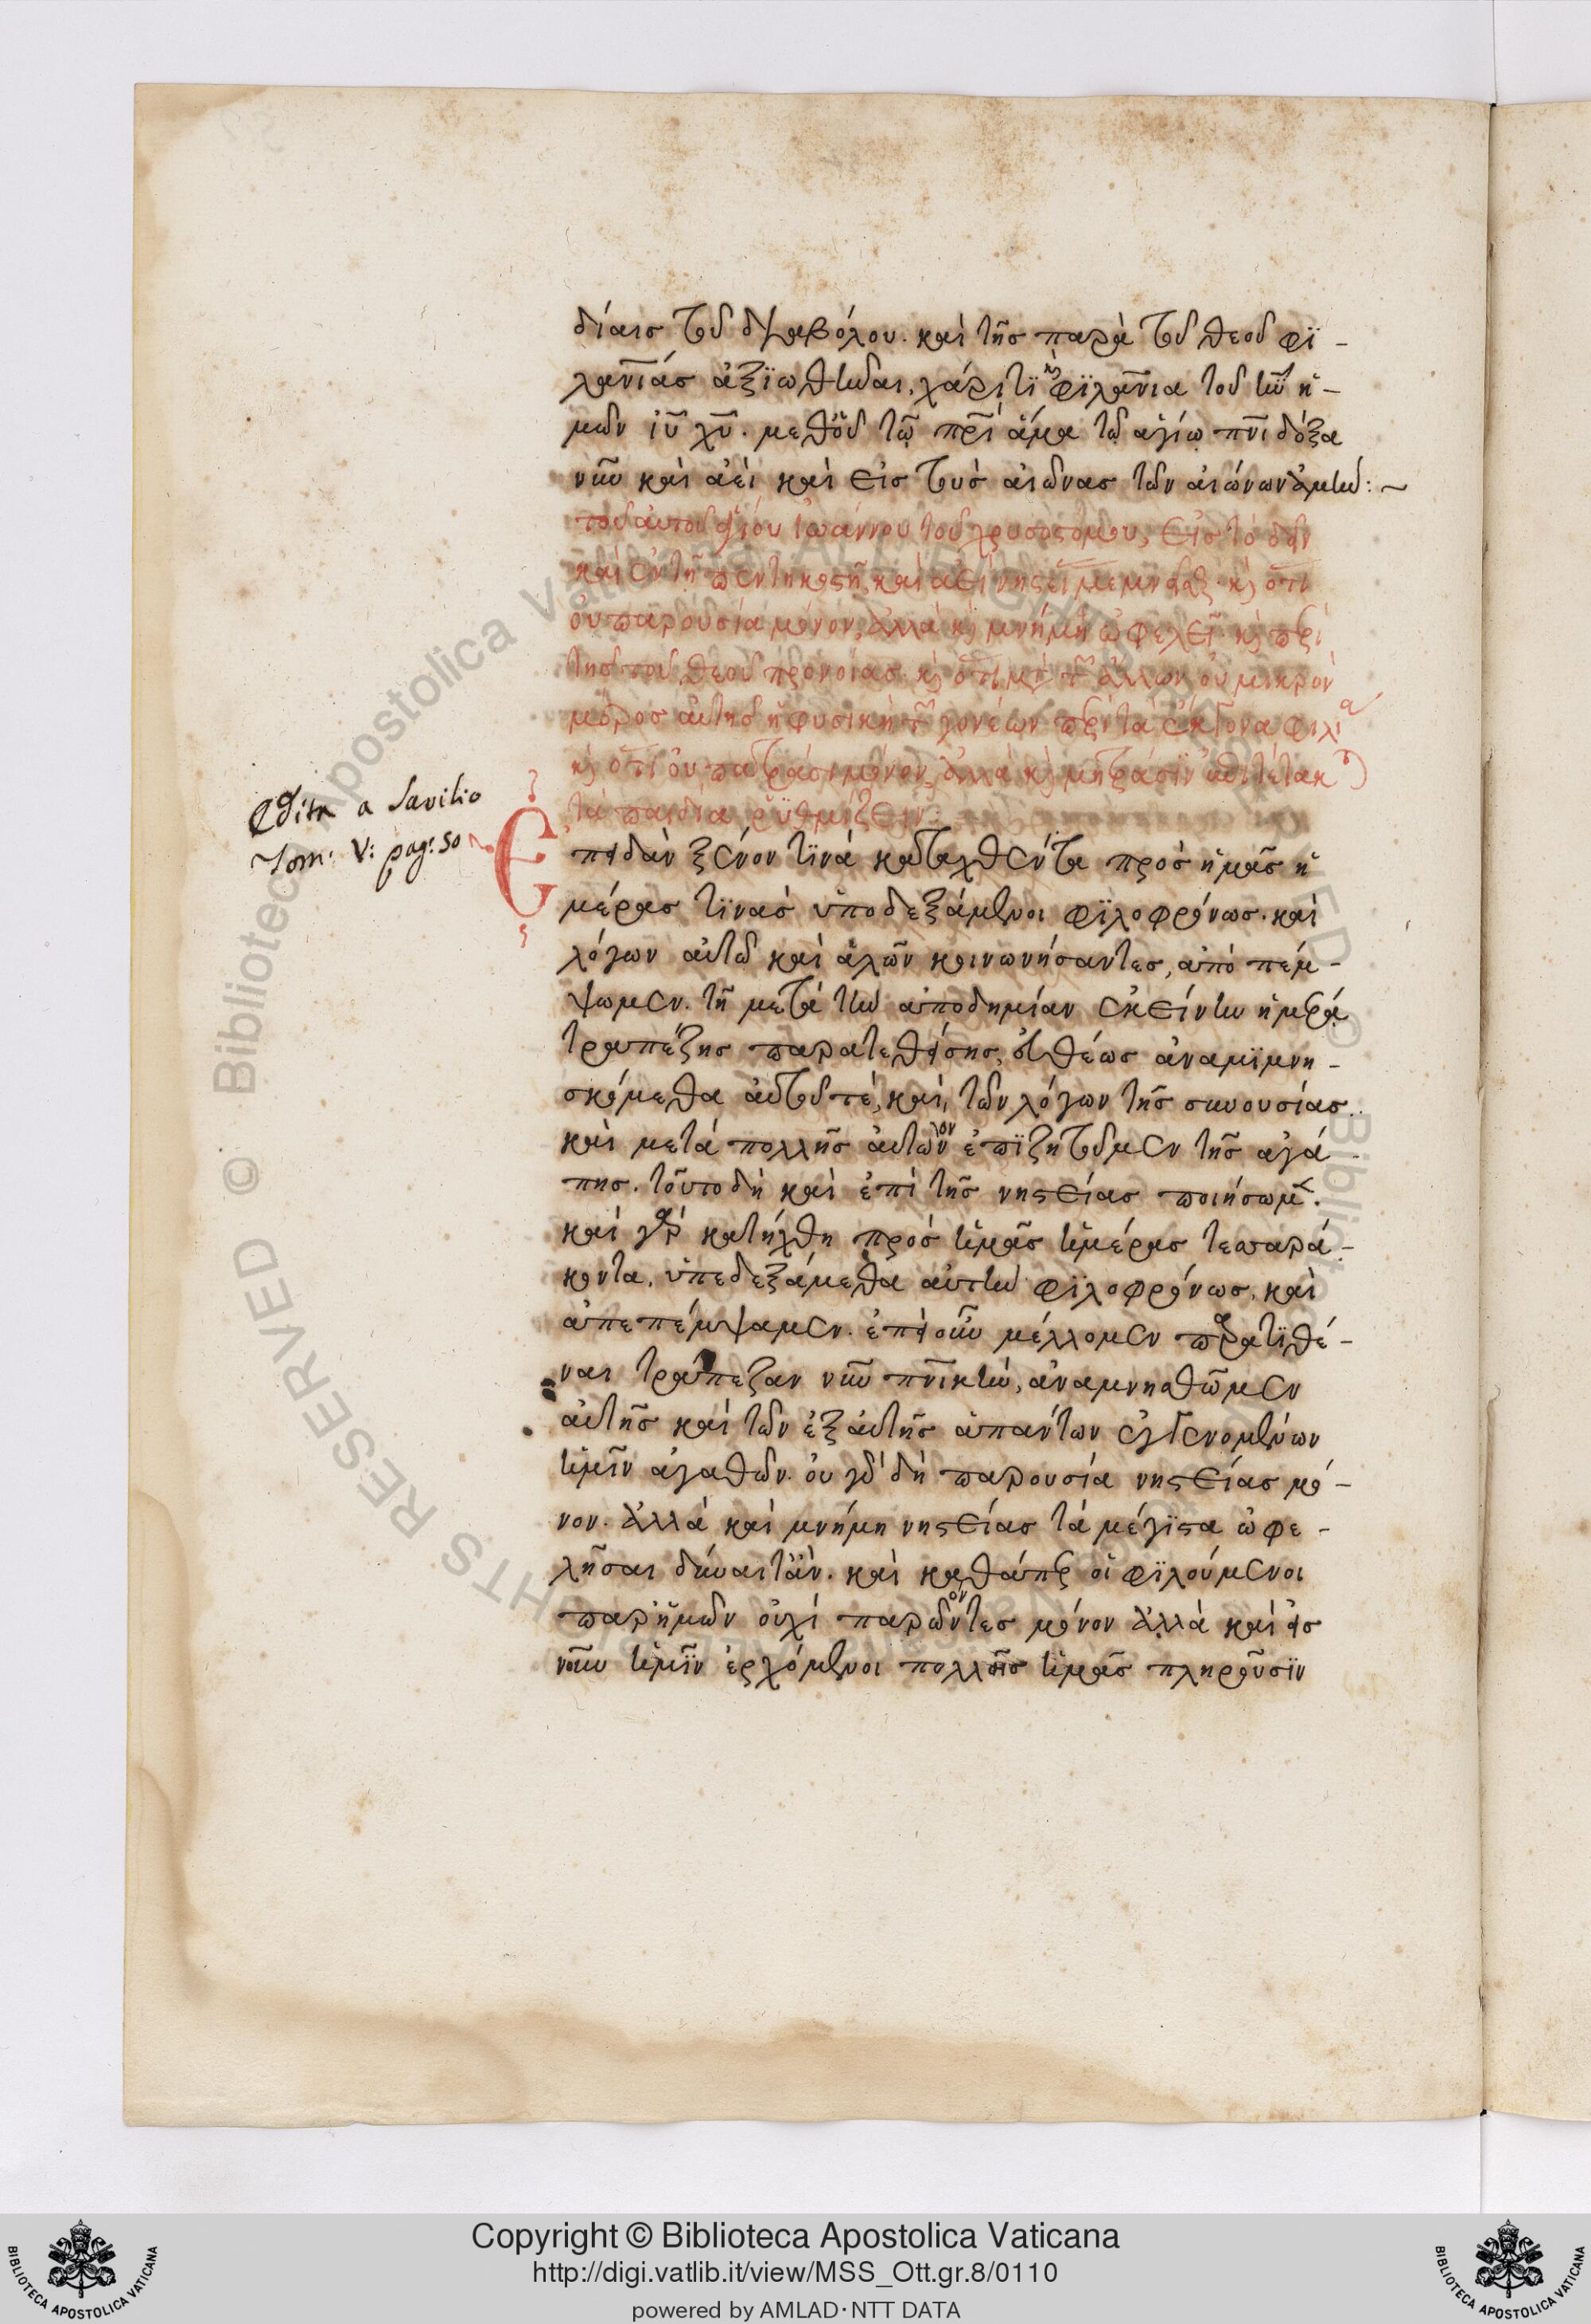 δίαις τοῦ διαβόλου. καὶ τῆς παρὰ τοῦ θεοῦ φϊ-
λαν̅ίας ἀξϊωθῆναι, χάριτϊ κ̀ φϊλαν̅ια τοῦ κυ̅ ἡ-
μῶν ἰυ̅ χυ̅. μεθοῦ τῶ πρ̅ὶ ἅμα τῶ ἁγίω πν̅ι δόξα
νῦν καὶ ἀεὶ καὶ εἰς τοὺς αἰῶνας τῶν αἰώνων ἀμήν: ~
τοῦ αὐτοῦ ἁγίου ἰωάννου τοῦ χρυσοστόμου, εἰς τὸ δεῖν
καὶ ἐν τῆ πεντηκοστῆ καὶ ἀεὶ νηστεί μεμνῆσθ. κ̀ ὅτι
οὐ παρουσία μόνον, ἀλλὰ κ̀ μνήμη ὠφελεῖ. κ̀ περὶ
τῆς τοῦ θεοῦ προνοίας. κ̀ ὅτι μετὰ τ̅ ἄλλων οὐ μικρὸν
μέρος αὐτῆς ἡ φυσικὴ τ̅ γονέων περὶ τὰ ἔκγονα φιλία
κ̀ ὅτι οὐ πατράσι μόνον, ἀλλὰ κ̀ μητράσϊν
τὰ παιδία ῥυθμίζειν:
Edita a Savilio
Tom: V: pag: 50
Ἐπειδὰν ξένον τϊνὰ καταχθέντα πρὸς ἡμᾶς ἡ
μέρας τϊνὰς ὑποδεξάμενοι φϊλοφρόνως. καὶ
λόγων αὐτῶ καὶ ἁλῶν κοινωνήσαντες, ἀποπέμ-
ψωμεν. τῆ μετὰ τὴν ἀποδημίαν ἐκείνην ἡμέρα
τραπέζης παρατεθείσης, εὐθέως ἀναμϊμνη-
σκόμεθα αὐτοῦ τὲ, καὶ, τῶν λόγων τῆς συνουσίας.
καὶ μετὰ πολλῆς αὐτὸν ἐπϊζητοῦμεν τῆς ἀγά
πης. τοῦτο δὴ καὶ ἐπὶ τῆς νηστείας ποιήσωμεν.
καὶ γὰρ κατήχθη πρὸς ἡμᾶς ἡμέρας τεσσαρά-
κοντα. ὑπεδεξάμεθα αὐτὴν φϊλοφρόνως, καὶ
ἀπεπέμψαμεν. ἐπεὶ οὖν μέλλομεν παρατϊθέ-
ναι τράπεζαν νῦν πν̅ικὴν, ἀναμνησθῶμεν
αὐτῆς καὶ τῶν ἐξ αὐτῆς ἁπάντων ἐγγενομένων
ἡμῖν ἀγαθῶν. οὐ γὰρ δὴ παρουσία νηστείας μό-
νον. ἀλλὰ καὶ μνήμη νηστείας τὰ μέγϊστα ὠφε-
λῆσαι δύναιτ' ἄν. καὶ καθάπερ οἱ φϊλούμενοι
παρ' ἡμῶν οὐχὶ παρόντες μόνον ἀλλὰ καὶ εἰς
νοῦν ἡμῖν ἐρχόμενοι πολλῆς ἡμᾶς πληροῦσϊν
Copyright © Biblioteca Apostolica Vaticana
http://digi.vatlib.it/view/MSS_Ott.gr.8/0110
powered by AMLAD·NTT DATA